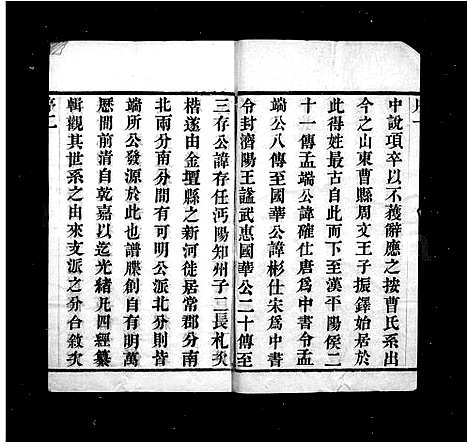 中說項卒以不獲辭應之按曹氏系出
今之山東曹縣周文王子振鐸始居於
此得姓最古自此而下至漢平陽侯二
十一傳孟端公諱確仕唐為中書令孟
端公八傳至國華公諱彬仕宋為中書
令封濟陽王諡武惠國華公二十傳至
三存公諱存任沔陽知州子二長札次
楷遂由金壇縣之新河徒居常郡分南
北兩分南分間有可明公派北分則皆
端所公發源於此也譜牒創自有明萬
歷間前清自乾嘉以迄光緒凡四經纂
輯觀其世系之由來支派之分合敘次
序二